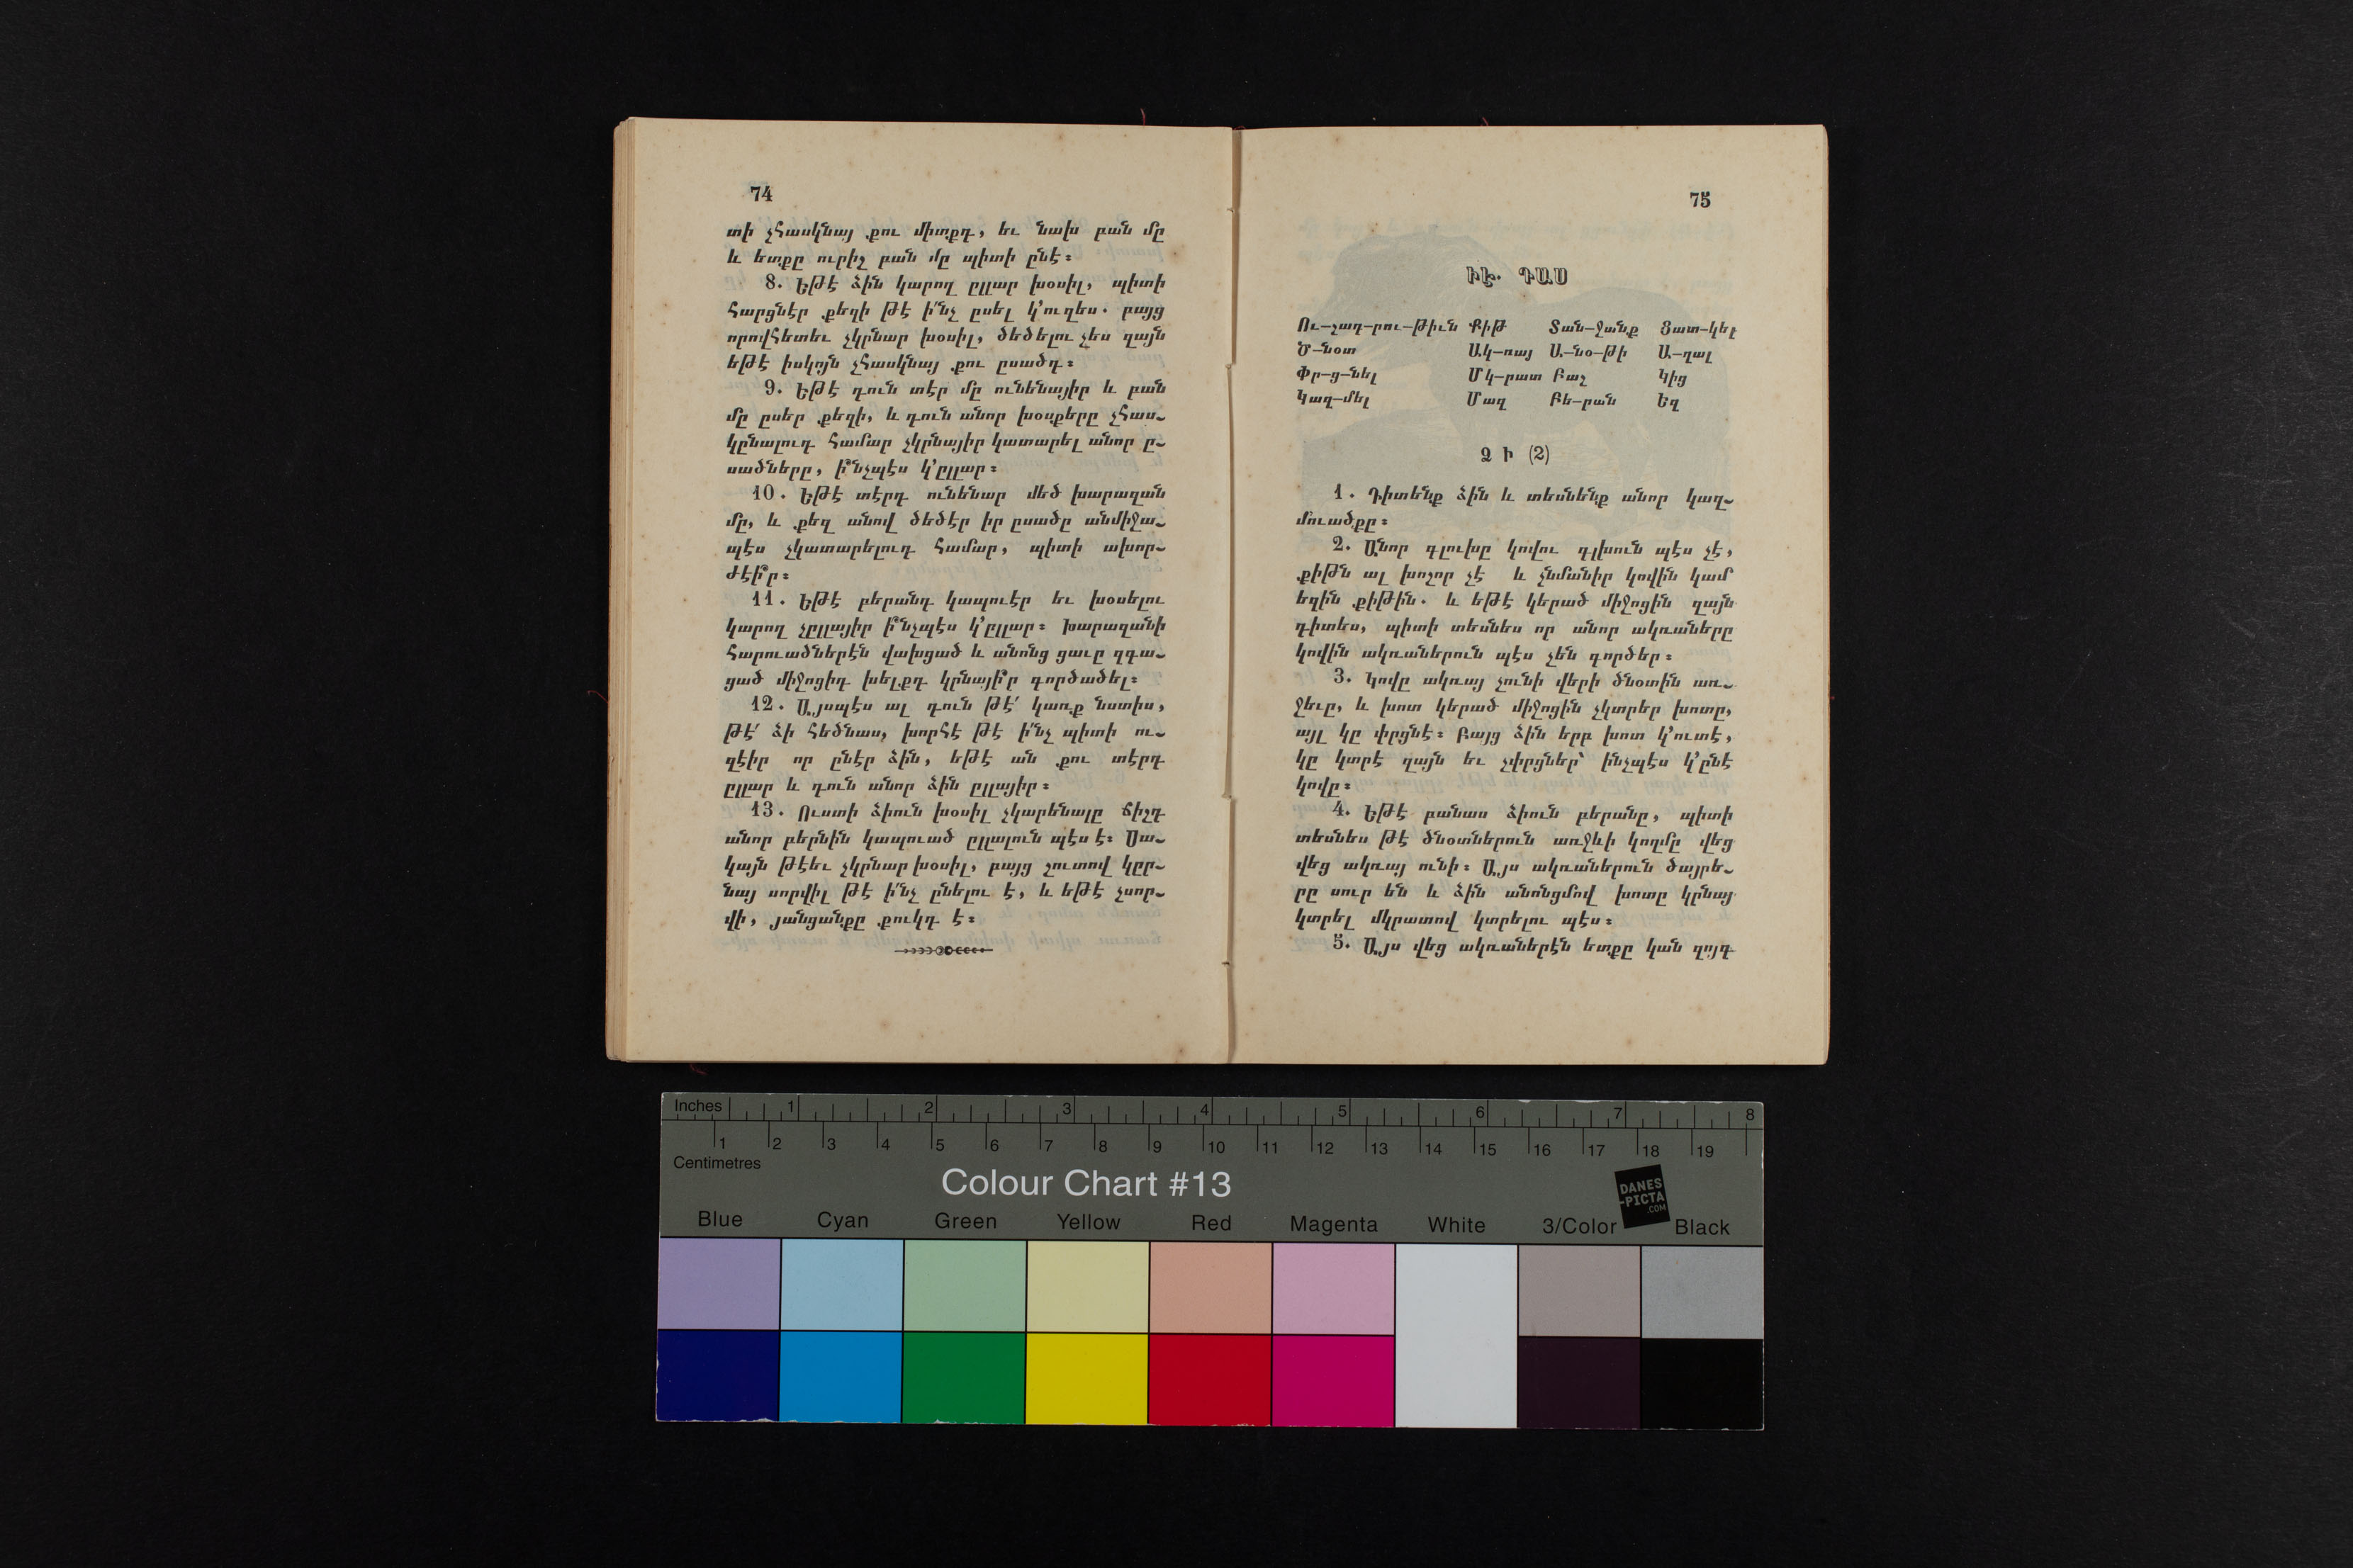 74
տի չհասկնայ քու միտքդ, եւ նախ բան մը
և ետքը ուրիչ բան մը պիտի ընէ։
8. Եթէ ձին կարող ըլլար խօսիլ, պիտի
հարցնէր քեզի թէ ի՞նչ ըսել կ՚ուզես. բայց
որովհետեւ չկրնար խօսիլ, ծեծելու չես զայն
եթէ իսկոյն չհասկնայ քու ըսածդ։
9. Եթէ դուն տէր մը ունենայիր և բան
մը ըսեր քեզի, և դուն անոր խօսքերը չհաս֊
կընալուդ համար չկրնայիր կատարել անոր ը֊
սածները, ի՞նչպէս կ՚ըլլար։
10. Եթէ տէրդ ունենար մեծ խարազան
մը, և քեզ անով ծեծէր իր ըսածը անմիջա֊
պէս չկատարելուդ համար, պիտի ախոր֊
ժէի՞ր։
11. Եթէ բերանդ կապուէր եւ խօսելու
կարող չըլլայիր ի՞նչպէս կ՚ըլլար։ Խարազանի
հարուածներէն վախցած և անոնց ցաւը զգա֊
ցած միջոցիդ խելքդ կրնայի՞ր գործածել։
12. Այսպէս ալ դուն թէ՛ կառք նստիս,
թէ՛ ձի հեծնաս, խորհէ թէ ի՞նչ պիտի ու֊
զէիր որ ընէր ձին, եթէ ան քու տէրդ
ըլլար և դուն անոր ձին ըլլայիր։
13. Ուստի ձիուն խօսիլ չկարենալը ճիշդ
անոր բերնին կապուած ըլլալուն պէս է։ Սա֊
կայն թէեւ չկրնար խօսիլ, բայց շուտով կըր֊
նայ սորվիլ թէ ի՞նչ ընելու է, և եթէ չսոր֊
վի, յանցանքը քուկդ է։
75
ԻԷ. ԴԱՍ
Ու-շադ-րու-թիւն Քիթ Տան-ջանք Ցատ-կել
Ծ-նօտ Ակ-ռայ Ա-նօ-թի Ա-ղալ
Փր-ց-նել Մկ-րատ Բաշ Կից
Կազ-մել Մազ Բե-րան Եզ
ՁԻ (2)
1. Դիտենք ձին և տեսնենք անոր կազ֊
մուածքը։
2. Անոր գլուխը կովու գլխուն պէս չէ,
քիթն ալ խոշոր չէ և չնմանիր կովին կամ
եզին քիթին. և եթէ կերած միջոցին զայն
դիտես, պիտի տեսնես որ անոր ակռաները
կովին ակռաներուն պէս չեն գործեր։
3. Կովը ակռայ չունի վերի ծնօտին առ֊
ջեւը, և խոտ կերած միջոցին չկտրեր խոտը,
այլ կը փրցնէ։ Բայց ձին երբ խոտ կ՚ուտէ,
կը կտրէ զայն եւ չփրցներ՝ ինչպէս կ՚ընէ
կովը։
4. Եթէ բանաս ձիուն բերանը, պիտի
տեսնես թէ ծնօտներուն առջևի կողմը վեց
վեց ակռայ ունի։ Այս ակռաներուն ծայրե֊
րը սուր են և ձին անոնցմով խոտը կրնայ
կտրել մկրատով կտրելու պէս։
5. Այս վեց ակռաներէն ետքը կան զոյգ
Inches 1 2 3 4 5 6 7 8
1 2 3 4 5 6 7 8 9 10 11 12 13 14 15 16 17 18 19
Centimetres
Colour Chart #13
DANES
-PICTA
.COM
Blue Cyan Green Yellow Red Magenta White 3/Color Black